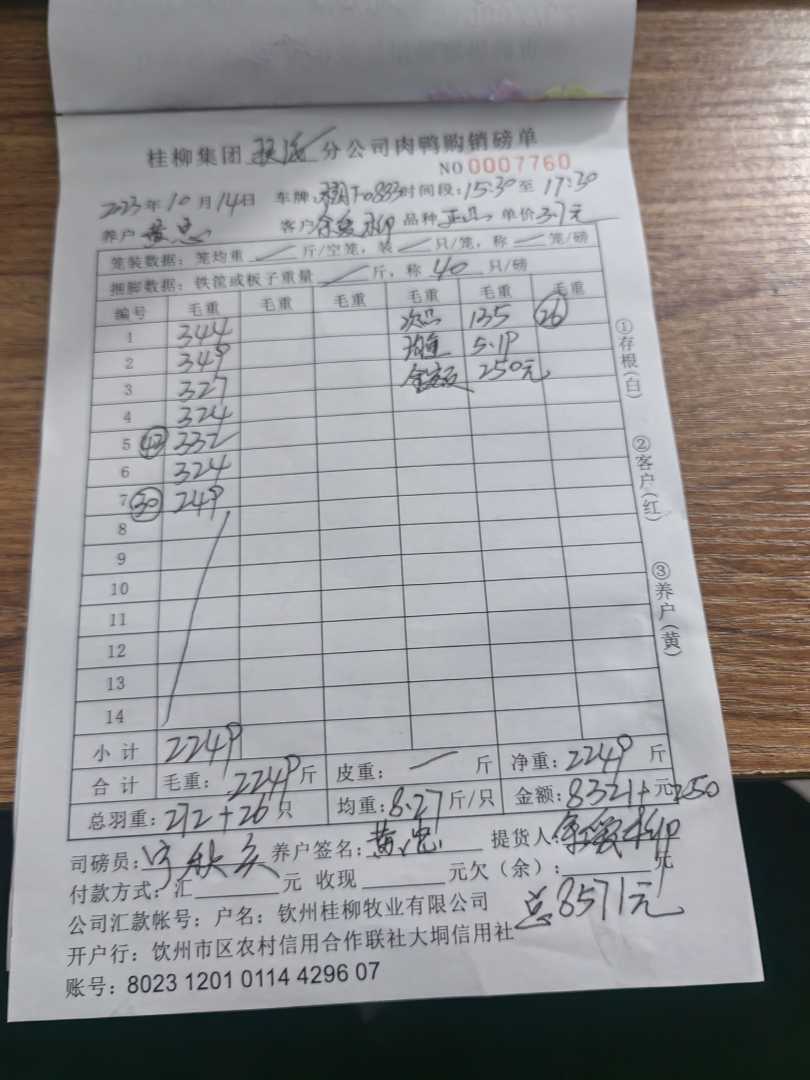 桂柳集团 分公司肉鸭购销磅单
NO 0007760
2023年10月14日 车牌: 时间段:15:30至17:30
养户 黄忠 客户 品种 正品 单价3.7元
笼装数据:笼均重 — 斤/空笼,装 — 只/笼,称 — 笼/磅
捆脚数据:铁筐或板子重量 — 斤,称 40 只/磅
编号 毛重 毛重 毛重 毛重 毛重 毛重
1 344 次品 135 26
2 349 均重 5.19
3 327 金额 250元
4 324
5 42 332
6 324
7 30 249
8
9
10
11
12
13
14
小计 2249
合计 毛重:2249斤 皮重: — 斤 净重:2249斤
总羽重:272+26只 均重:8.27斤/只 金额:8321+元250
司磅员: 养户签名:黄忠 提货人:
付款方式:汇 元 收现 元欠(余): 元
公司汇款帐号:户名:钦州桂柳牧业有限公司 总8571元
开户行:钦州市区农村信用合作联社大垌信用社
账号:8023 1201 0114 4296 07
①存根(白)
②客户(红)
③养户(黄)